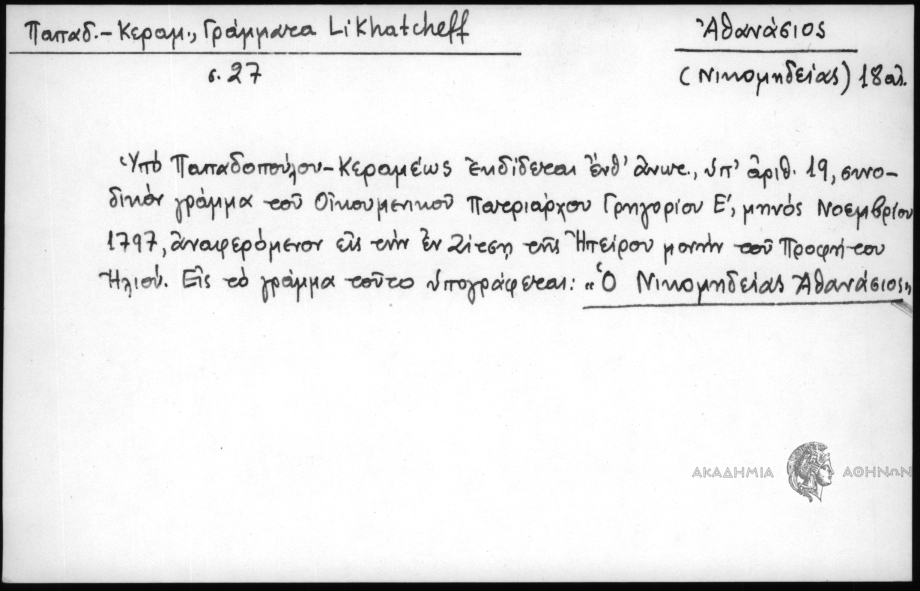 Παπαδ.-Κεραμ., Γράμματα Likhatcheff
Ἀθανάσιος
σ. 27
(Νικομηδείας) 18 αἰ.
Ὑπὸ Παπαδοπούλου-Κεραμέως ἐκδίδεται ἔνθ' ἄνωτ., ὑπ' ἀριθ. 19, συνο-
δικὸν γράμμα τοῦ Οἰκουμενικοῦ Πατριάρχου Γρηγορίου Ε', μηνὸς Νοεμβρίου
1797, ἀναφερόμενον εἰς τὴν ἐν Ζίτσῃ τῆς Ἠπείρου μονὴν τοῦ Προφήτου
Ἠλιού. Εἰς τὸ γράμμα τοῦτο ὑπογράφεται: «Ὁ Νικομηδείας Ἀθανάσιος»
ΑΚΑΔΗΜΙΑ ΑΘΗΝΩΝ